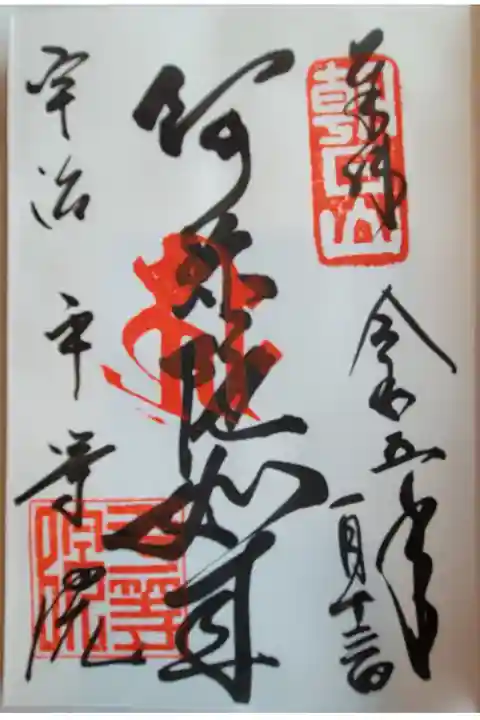 奉拝
朝日山
令和五年
一月十三日
阿弥陀如来
宇治 平等院